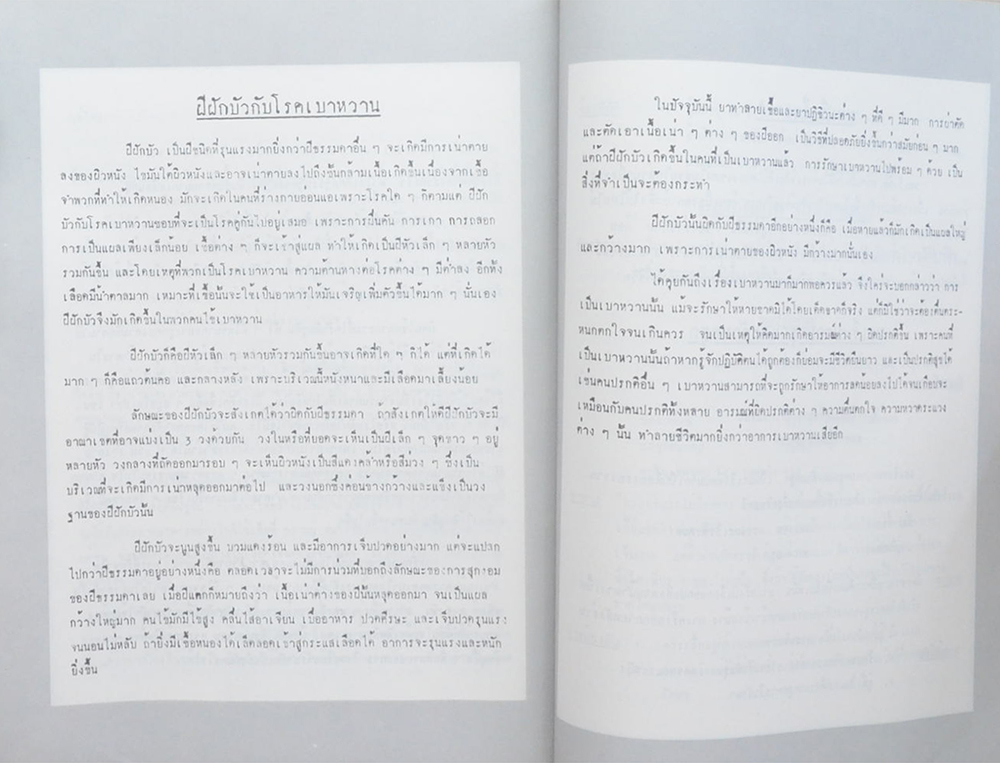 ฝีฝักบัวกับโรคเบาหวาน
ฝีฝักบัว เป็นฝีชนิดที่รุนแรงมากยิ่งกว่าฝีธรรมดาอื่น ๆ จะเกิดมีการเน่าตาย
ลงของผิวหนัง ไขมันใต้ผิวหนังและอาจเน่าตายลงไปถึงชั้นกล้ามเนื้อเกิดขึ้นเนื่องจากเชื้อ
จำพวกที่ทำให้เกิดหนอง มักจะเกิดในคนที่ร่างกายอ่อนแอเพราะโรคใด ๆ ก็ตามแต่ ฝีฝัก
บัวกับโรคเบาหวานชอบที่จะเป็นโรคคู่กันไปอยู่เสมอ เพราะการผื่นคัน การเกา การถลอก
การเป็นแผลเพียงเล็กน้อย เชื้อต่าง ๆ ก็จะเข้าสู่แผล ทำให้เกิดเป็นฝีหัวเล็ก ๆ หลายหัว
รวมกันขึ้น และโดยเหตุที่พวกเป็นโรคเบาหวาน ความต้านทางต่อโรคต่าง ๆ มีต่ำลง อีกทั้ง
เลือดมีน้ำตาลมาก เหมาะที่เชื้อนั้นจะใช้เป็นอาหารให้มันเจริญเพิ่มตัวขึ้นได้มาก ๆ นั่นเอง
ฝีฝักบัวจึงมักเกิดขึ้นในพวกคนไข้เบาหวาน
ฝีฝักบัวก็คือฝีหัวเล็ก ๆ หลายหัวรวมกันขึ้นอาจเกิดที่ใด ๆ ก็ได้ แต่ที่เกิดได้
มาก ๆ ก็คือแถวต้นคอ และกลางหลัง เพราะบริเวณนี้หนังหนาและมีเลือดมาเลี้ยงน้อย
ลักษณะของฝีฝักบัวจะสังเกตได้ว่าผิดกับฝีธรรมดา ถ้าสังเกตให้ดีฝีฝักบัวจะมี
อาณาเขตที่อาจแบ่งเป็น 3 วงด้วยกัน วงในหรือที่ยอดจะเห็นเป็นฝีเล็ก ๆ จุดขาว ๆ อยู่
หลายหัว วงกลางที่ถัดออกมารอบ ๆ จะเห็นผิวหนังเป็นสีแดงคล้ำหรือสีม่วง ๆ ซึ่งเป็น
บริเวณที่จะเกิดมีการเน่าหลุดออกมาต่อไป และวงนอกซึ่งค่อนข้างกว้างและแข็งเป็นวง
ฐานของฝีฝักบัวนั้น
ฝีฝักบัวจะนูนสูงขึ้น บวมแดงร้อน และมีอาการเจ็บปวดอย่างมาก แต่จะแปลก
ไปกว่าฝีธรรมดาอยู่อย่างหนึ่งคือ ตลอดเวลาจะไม่มีการน่วมที่บอกถึงลักษณะของการสุกงอม
ของฝีธรรมดาเลย เมื่อฝีแตกก็หมายถึงว่า เนื้อเน่าต่างของฝีนั้นหลุดออกมา จนเป็นแผล
กว้างใหญ่มาก คนไข้มักมีไข้สูง คลื่นไส้อาเจียน เบื่ออาหาร ปวดศีรษะ และเจ็บปวดรุนแรง
จนนอนไม่หลับ ถ้ายิ่งมีเชื้อหนองได้เล็ดลอดเข้าสู่กระแสเลือดได้ อาการจะรุนแรงและหนัก
ยิ่งขึ้น
ในปัจจุบันนี้ ยาทำลายเชื้อและยาปฏิชีวนะต่าง ๆ ที่ดี ๆ มีมาก การผ่าตัด
และตัดเอาเนื้อเน่า ๆ ต่าง ๆ ของฝีออก เป็นวิธีที่ปลอดภัยยิ่งขึ้นกว่าสมัยก่อน ๆ มาก
แต่ถ้าฝีฝักบัวเกิดขึ้นในคนที่เป็นเบาหวานแล้ว การรักษาเบาหวานไปพร้อม ๆ ด้วย เป็น
สิ่งที่จำเป็นจะต้องกระทำ
ฝีฝักบัวนั้นผิดกับฝีธรรมดาอีกอย่างหนึ่งก็คือ เมื่อหายแล้วก็มักเกิดเป็นแผลใหญ่
และกว้างมาก เพราะการเน่าตายของผิวหนัง มีกว้างมากนั่นเอง
ได้คุยกันถึงเรื่องเบาหวานมาก็มากพอควรแล้ว จึงใคร่จะบอกกล่าวว่า การ
เป็นเบาหวานนั้น แม้จะรักษาให้หายขาดมิได้โดยเด็ดขาดก็จริง แต่ก็มิใช่ว่าจะต้องตื่นตระ-
หนกตกใจจนเกินควร จนเป็นเหตุให้คิดมากเกิดอารมณ์ต่าง ๆ ผิดปรกติขึ้น เพราะคนที่
เป็นเบาหวานนั้นถ้าหากรู้จักปฏิบัติตนได้ถูกต้องก็ย่อมจะมีชีวิตยืนยาว และเป็นปรกติสุขได้
เช่นคนปรกติอื่น ๆ เบาหวานสามารถที่จะถูกรักษาให้อาการลดน้อยลงไปได้จนเกือบจะ
เหมือนกับคนปรกติทั้งหลาย อารมณ์ที่ผิดปรกติต่าง ๆ ความตื่นตกใจ ความหวาดระแวง
ต่าง ๆ นั้น ทำลายชีวิตมากยิ่งกว่าอาการเบาหวานเสียอีก